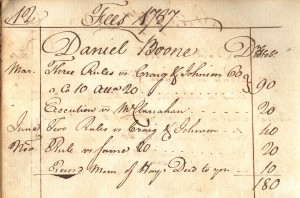 12 Fees 1787
Daniel Boone Dr Tob:
Mar. Three Rules vs Craig & Johnson 60
a, C 10 atta 20 } 90
Execution vs McClanahan 20
June Two Rules vs Craig & Johnson 40
Nov Rule vs same 20 20
Record Mem. of Hays Deed to you 10
180